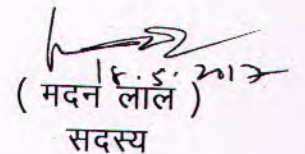 18.5.2017
( मदन लाल )
सदस्य